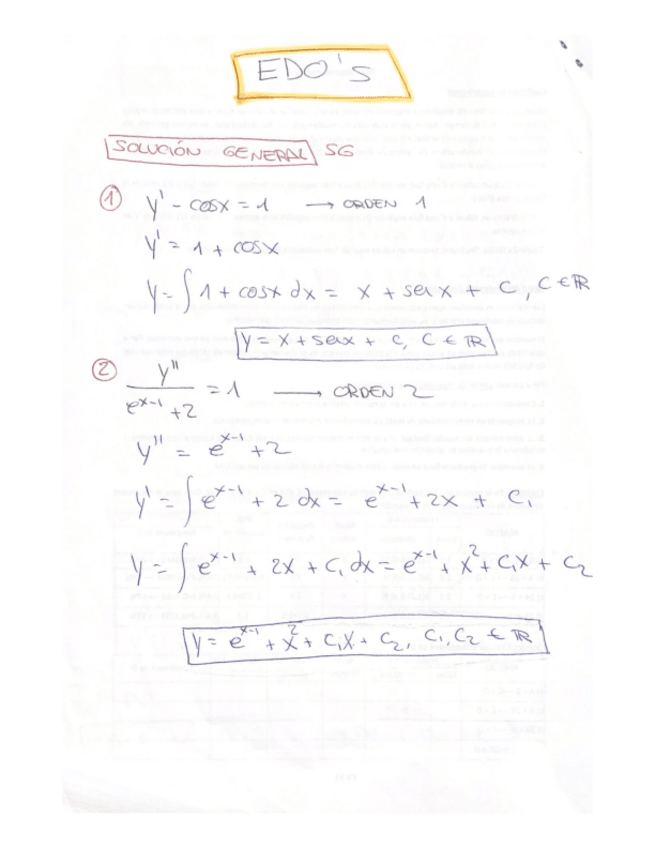 EDO's
SOLUCIÓN GENERAL SG
① y' - cosx = 1 → ORDEN 1
y' = 1 + cosx
y = ∫ 1 + cosx dx = x + senx + C, C ∈ ℝ
y = x + senx + C, C ∈ ℝ
② y'' / (e^(x-1) + 2) = 1 → ORDEN 2
y'' = e^(x-1) + 2
y' = ∫ e^(x-1) + 2 dx = e^(x-1) + 2x + C₁
y = ∫ e^(x-1) + 2x + C₁ dx = e^(x-1) + x² + C₁x + C₂
y = e^(x-1) + x² + C₁x + C₂, C₁, C₂ ∈ ℝ